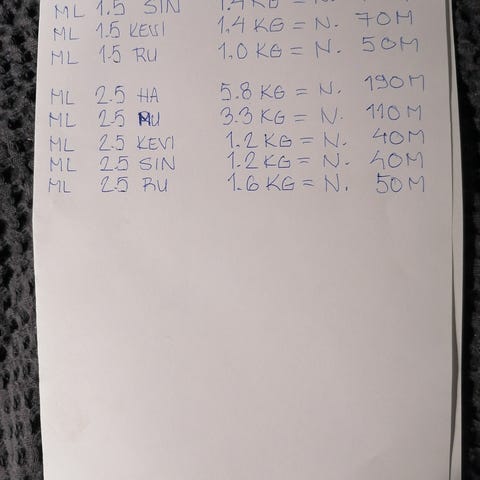 ML 1.5 SIN 1.4 KG = N.
ML 1.5 KEVI 1.4 KG = N. 70M
ML 1.5 RU 1.0 KG = N. 50M
ML 2.5 HA 5.8 KG = N. 190M
ML 2.5 MU 3.3 KG = N. 110M
ML 2.5 KEVI 1.2 KG = N. 40M
ML 2.5 SIN 1.2 KG = N. 40M
ML 2.5 RU 1.6 KG = N. 50M